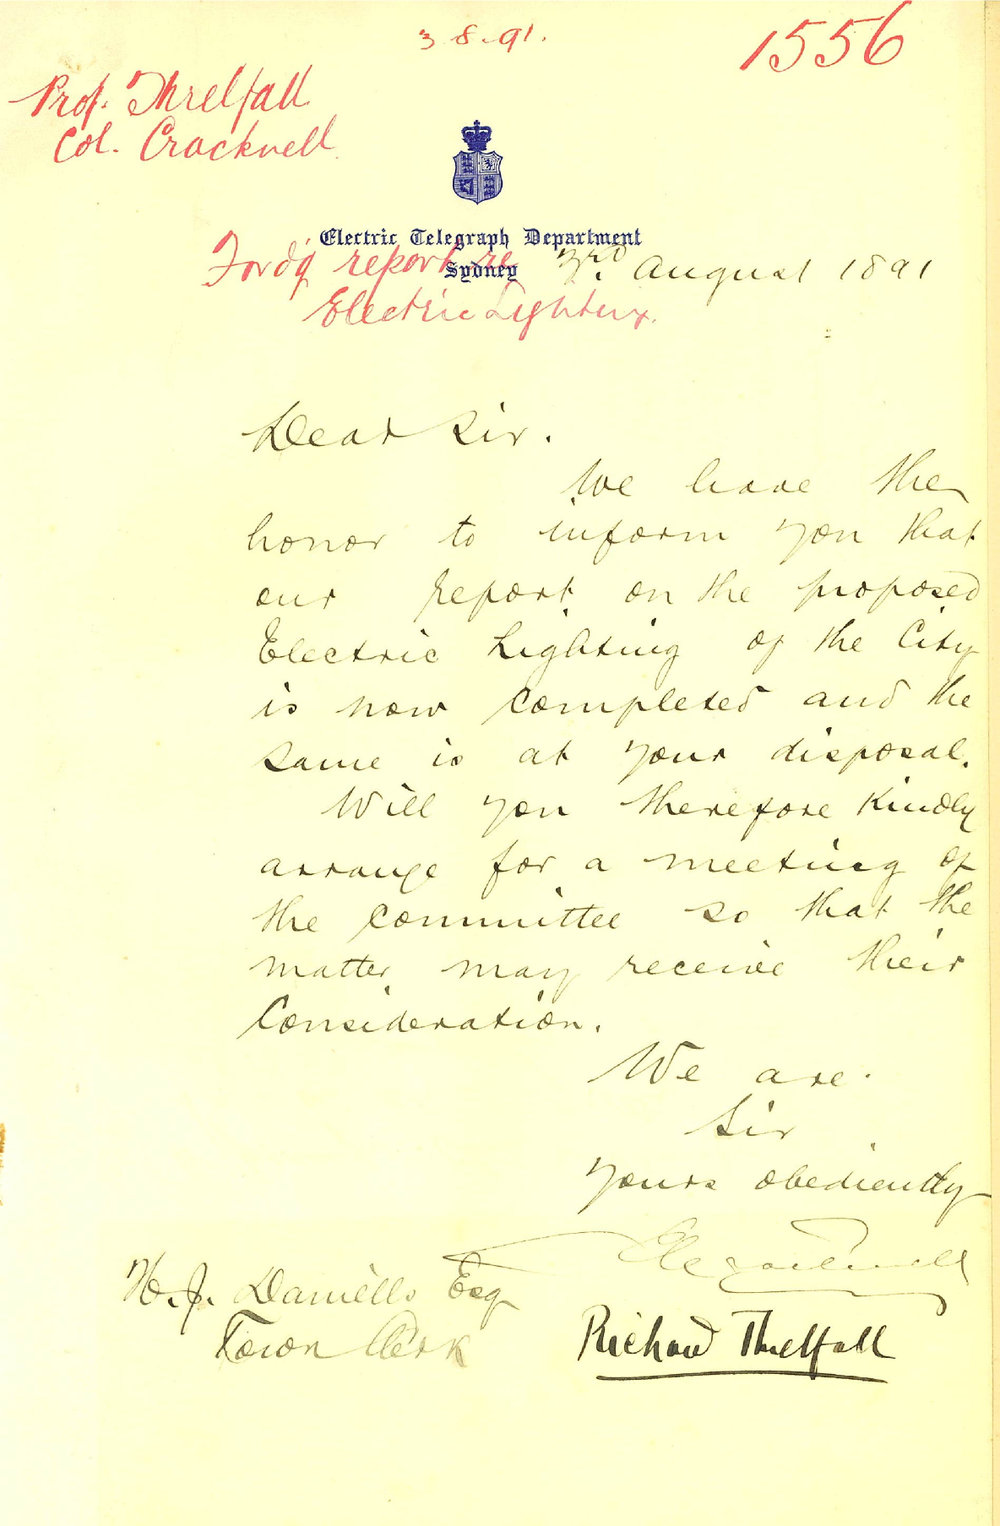 3.8.91.
1556
Prof. Threlfall
Col. Cracknell
Electric Telegraph Department
Sydney
3rd. August 1891
Ford'g report re
Electric Lighting.
Dear Sir.
We have the
honor to inform you that
our report on the proposed
Electric Lighting of the City
is now completed and the
same is at your disposal.
Will you therefore kindly
arrange for a meeting of
the Committee so that the
matter may receive their
Consideration.
We are.
Sir
Yours obediently
E C Cracknell
Richard Threlfall
H. J. Daniells Esq
Town Clerk